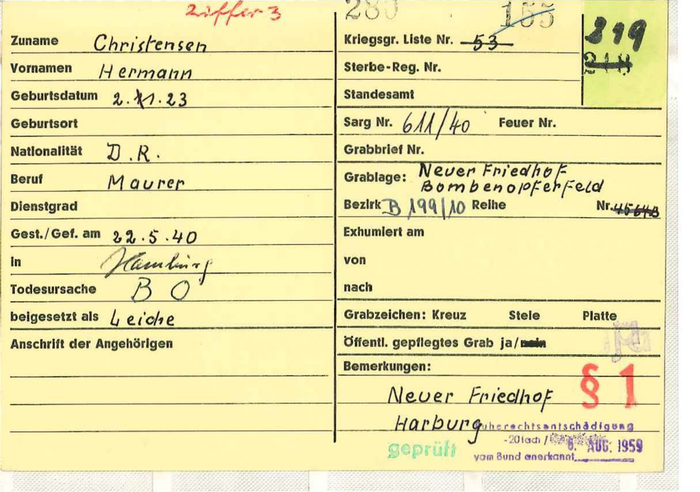 Ziffer 3
280
155
219
218
Zuname Christensen
Vornamen Hermann
Geburtsdatum 2.11.23
Geburtsort
Nationalität D.R.
Beruf Maurer
Dienstgrad
Gest./Gef. am 22.5.40
in Hamburg
Todesursache B O
beigesetzt als Leiche
Anschrift der Angehörigen
Kriegsgr. Liste Nr. 53
Sterbe-Reg. Nr.
Standesamt
Sarg Nr. 611/40 Feuer Nr.
Grabbrief Nr.
Grablage: Neuer Friedhof
Bombenopferfeld
Bezirk B 199/10 Reihe Nr.
Exhumiert am
von
nach
Grabzeichen: Kreuz Stele Platte
Öffentl. gepflegtes Grab ja/nein
Bemerkungen:
§ 1
Neuer Friedhof
Harburg
uherechtsentschädigung
-20fach/ 6. AUG. 1959
vom Bund anerkannt
geprüft